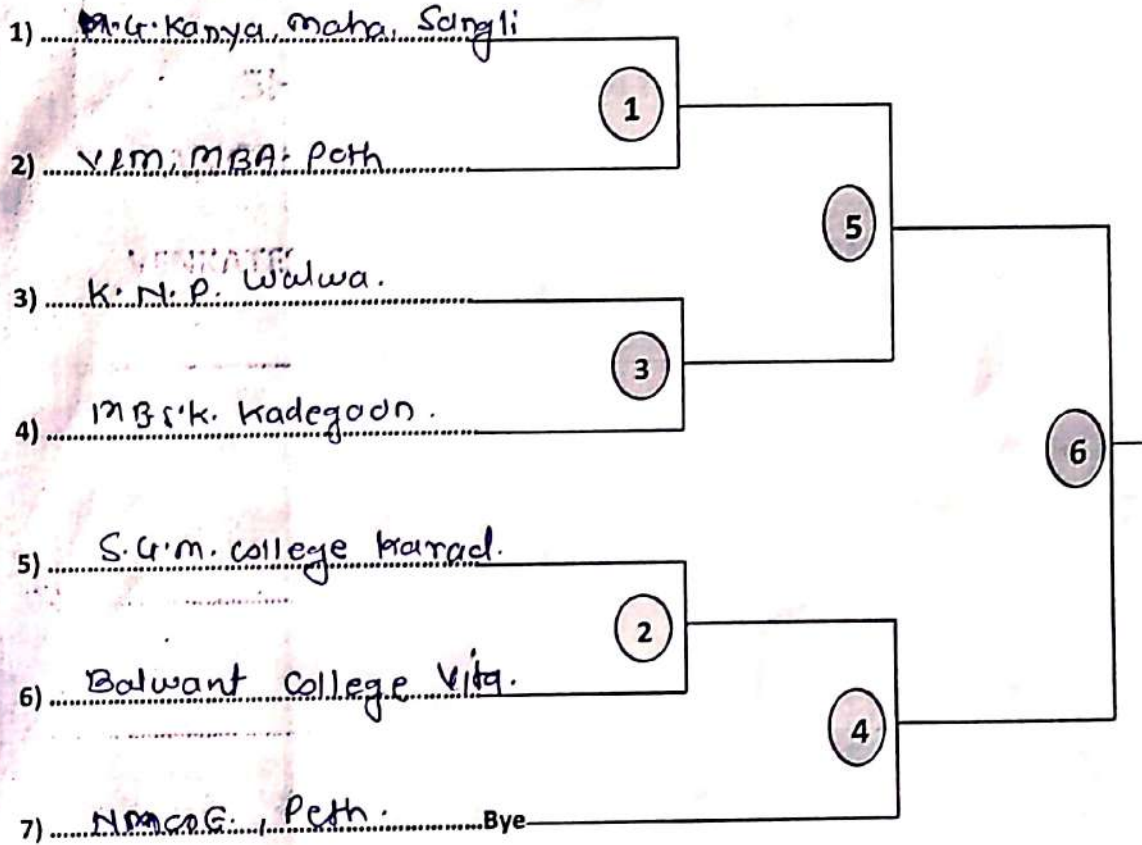 1) M.G. Kanya, maha, Sangli
1
2) VPM, MBA. Peth
5
3) K. N. P. Walwa.
3
4) MBSK. Kadegaon.
6
5) S.G.M. college Karad.
2
6) Balwant College Vita.
4
7) , Peth. Bye